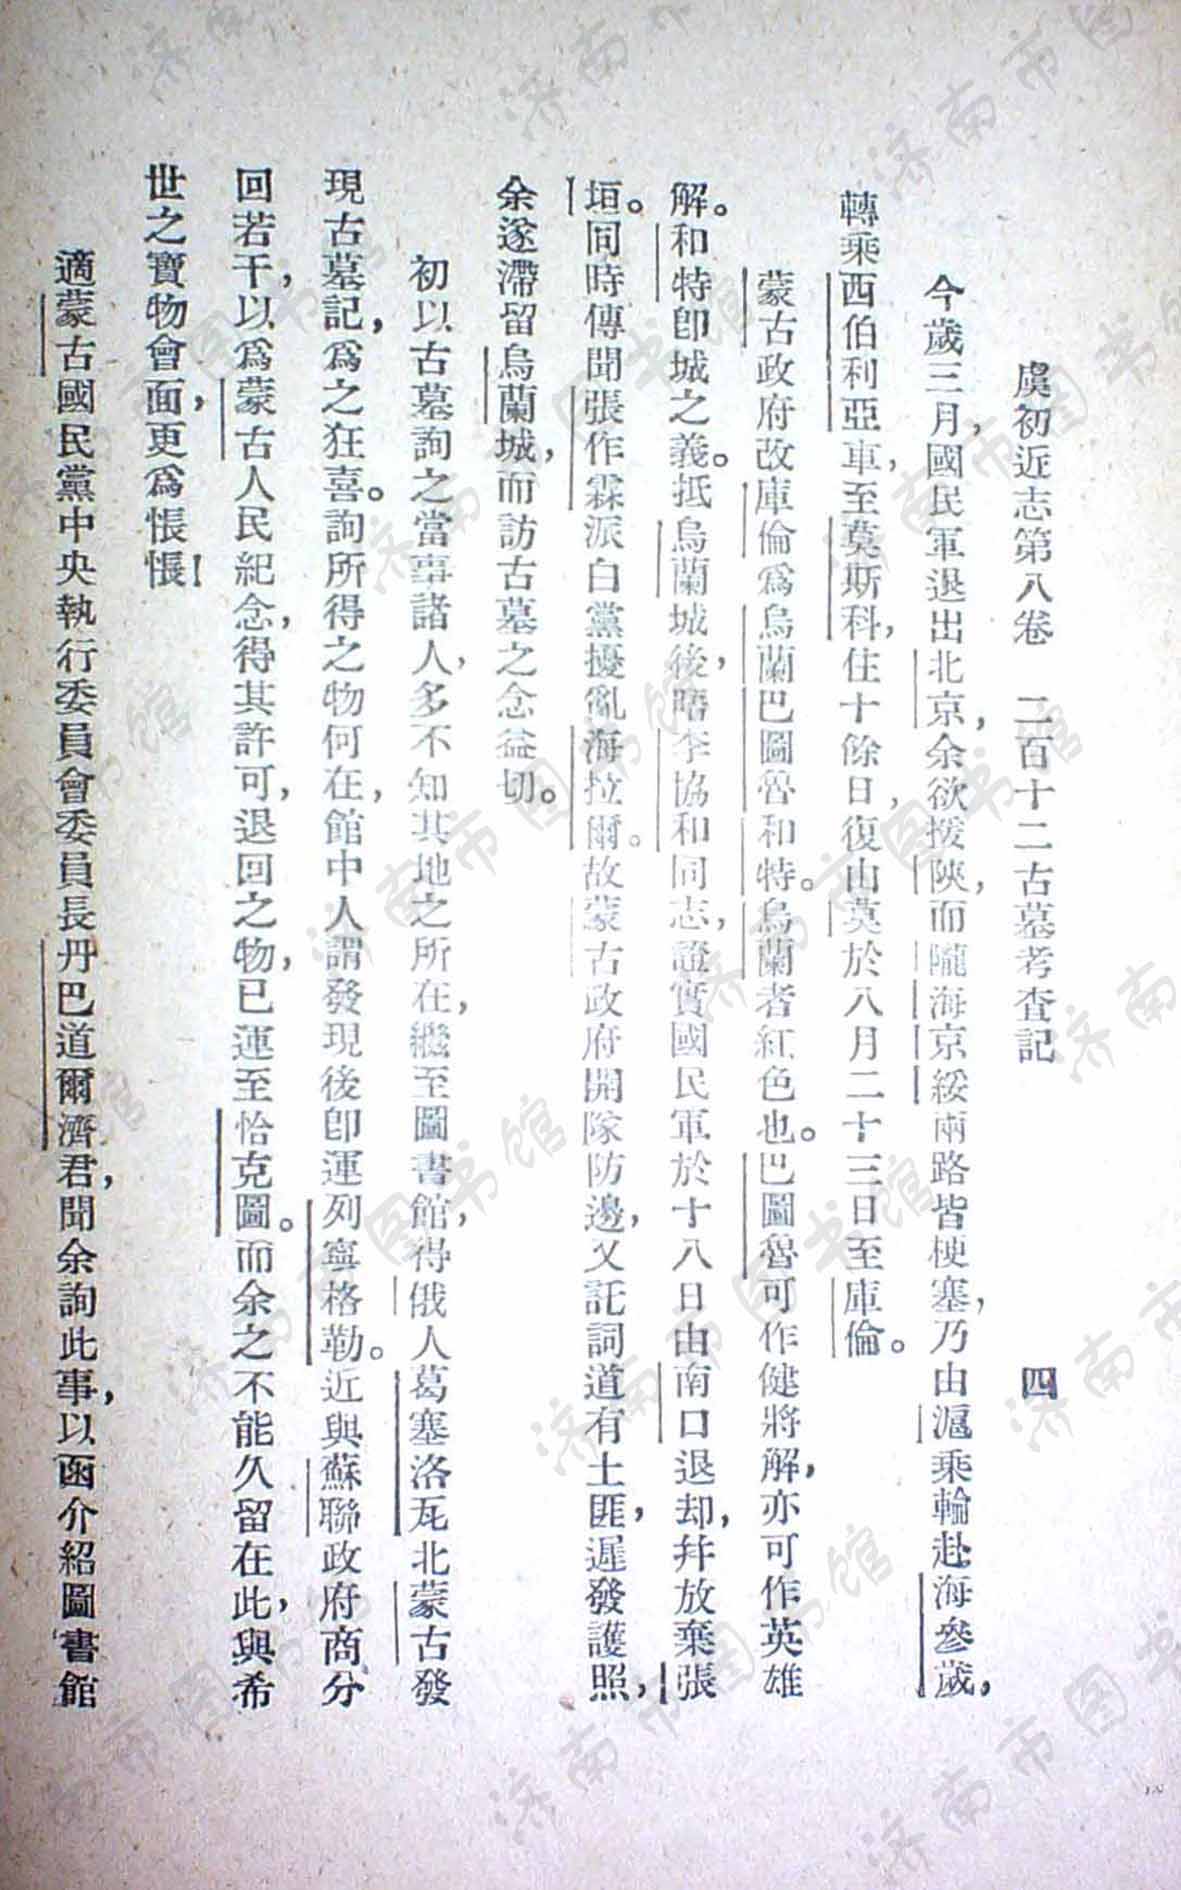 虞初近志第八卷　二百十二古墓考查記　四
今歲三月，國民軍退出北京，余欲援陝，而隴海京綏兩路皆梗塞，乃由滬乘輪赴海參歲，
轉乘西伯利亞車，至莫斯科，住十餘日，復由莫於八月二十三日至庫倫。
蒙古政府改庫倫爲烏蘭巴圖魯和特。烏蘭者紅色也。巴圖魯可作健將解，亦可作英雄
解。和特卽城之義。抵烏蘭城後，晤李協和同志，證實國民軍於十八日由南口退却，幷放棄張
垣。同時傳聞張作霖派白黨擾亂海拉爾。故蒙古政府開隊防邊，又託詞道有土匪，遲發護照，
余遂滯留烏蘭城，而訪古墓之念益切。
初以古墓詢之當事諸人，多不知其地之所在，繼至圖書館，得俄人葛塞洛瓦北蒙古發
現古墓記，爲之狂喜。詢所得之物何在，館中人謂發現後卽運列寧格勒。近與蘇聯政府商分
回若干，以爲蒙古人民紀念，得其許可，退回之物，已運至恰克圖。而余之不能久留在此，與希
世之寶物會面，更爲悵悵！
適蒙古國民黨中央執行委員會委員長丹巴道爾濟君，聞余詢此事，以函介紹圖書館
济南市图书馆